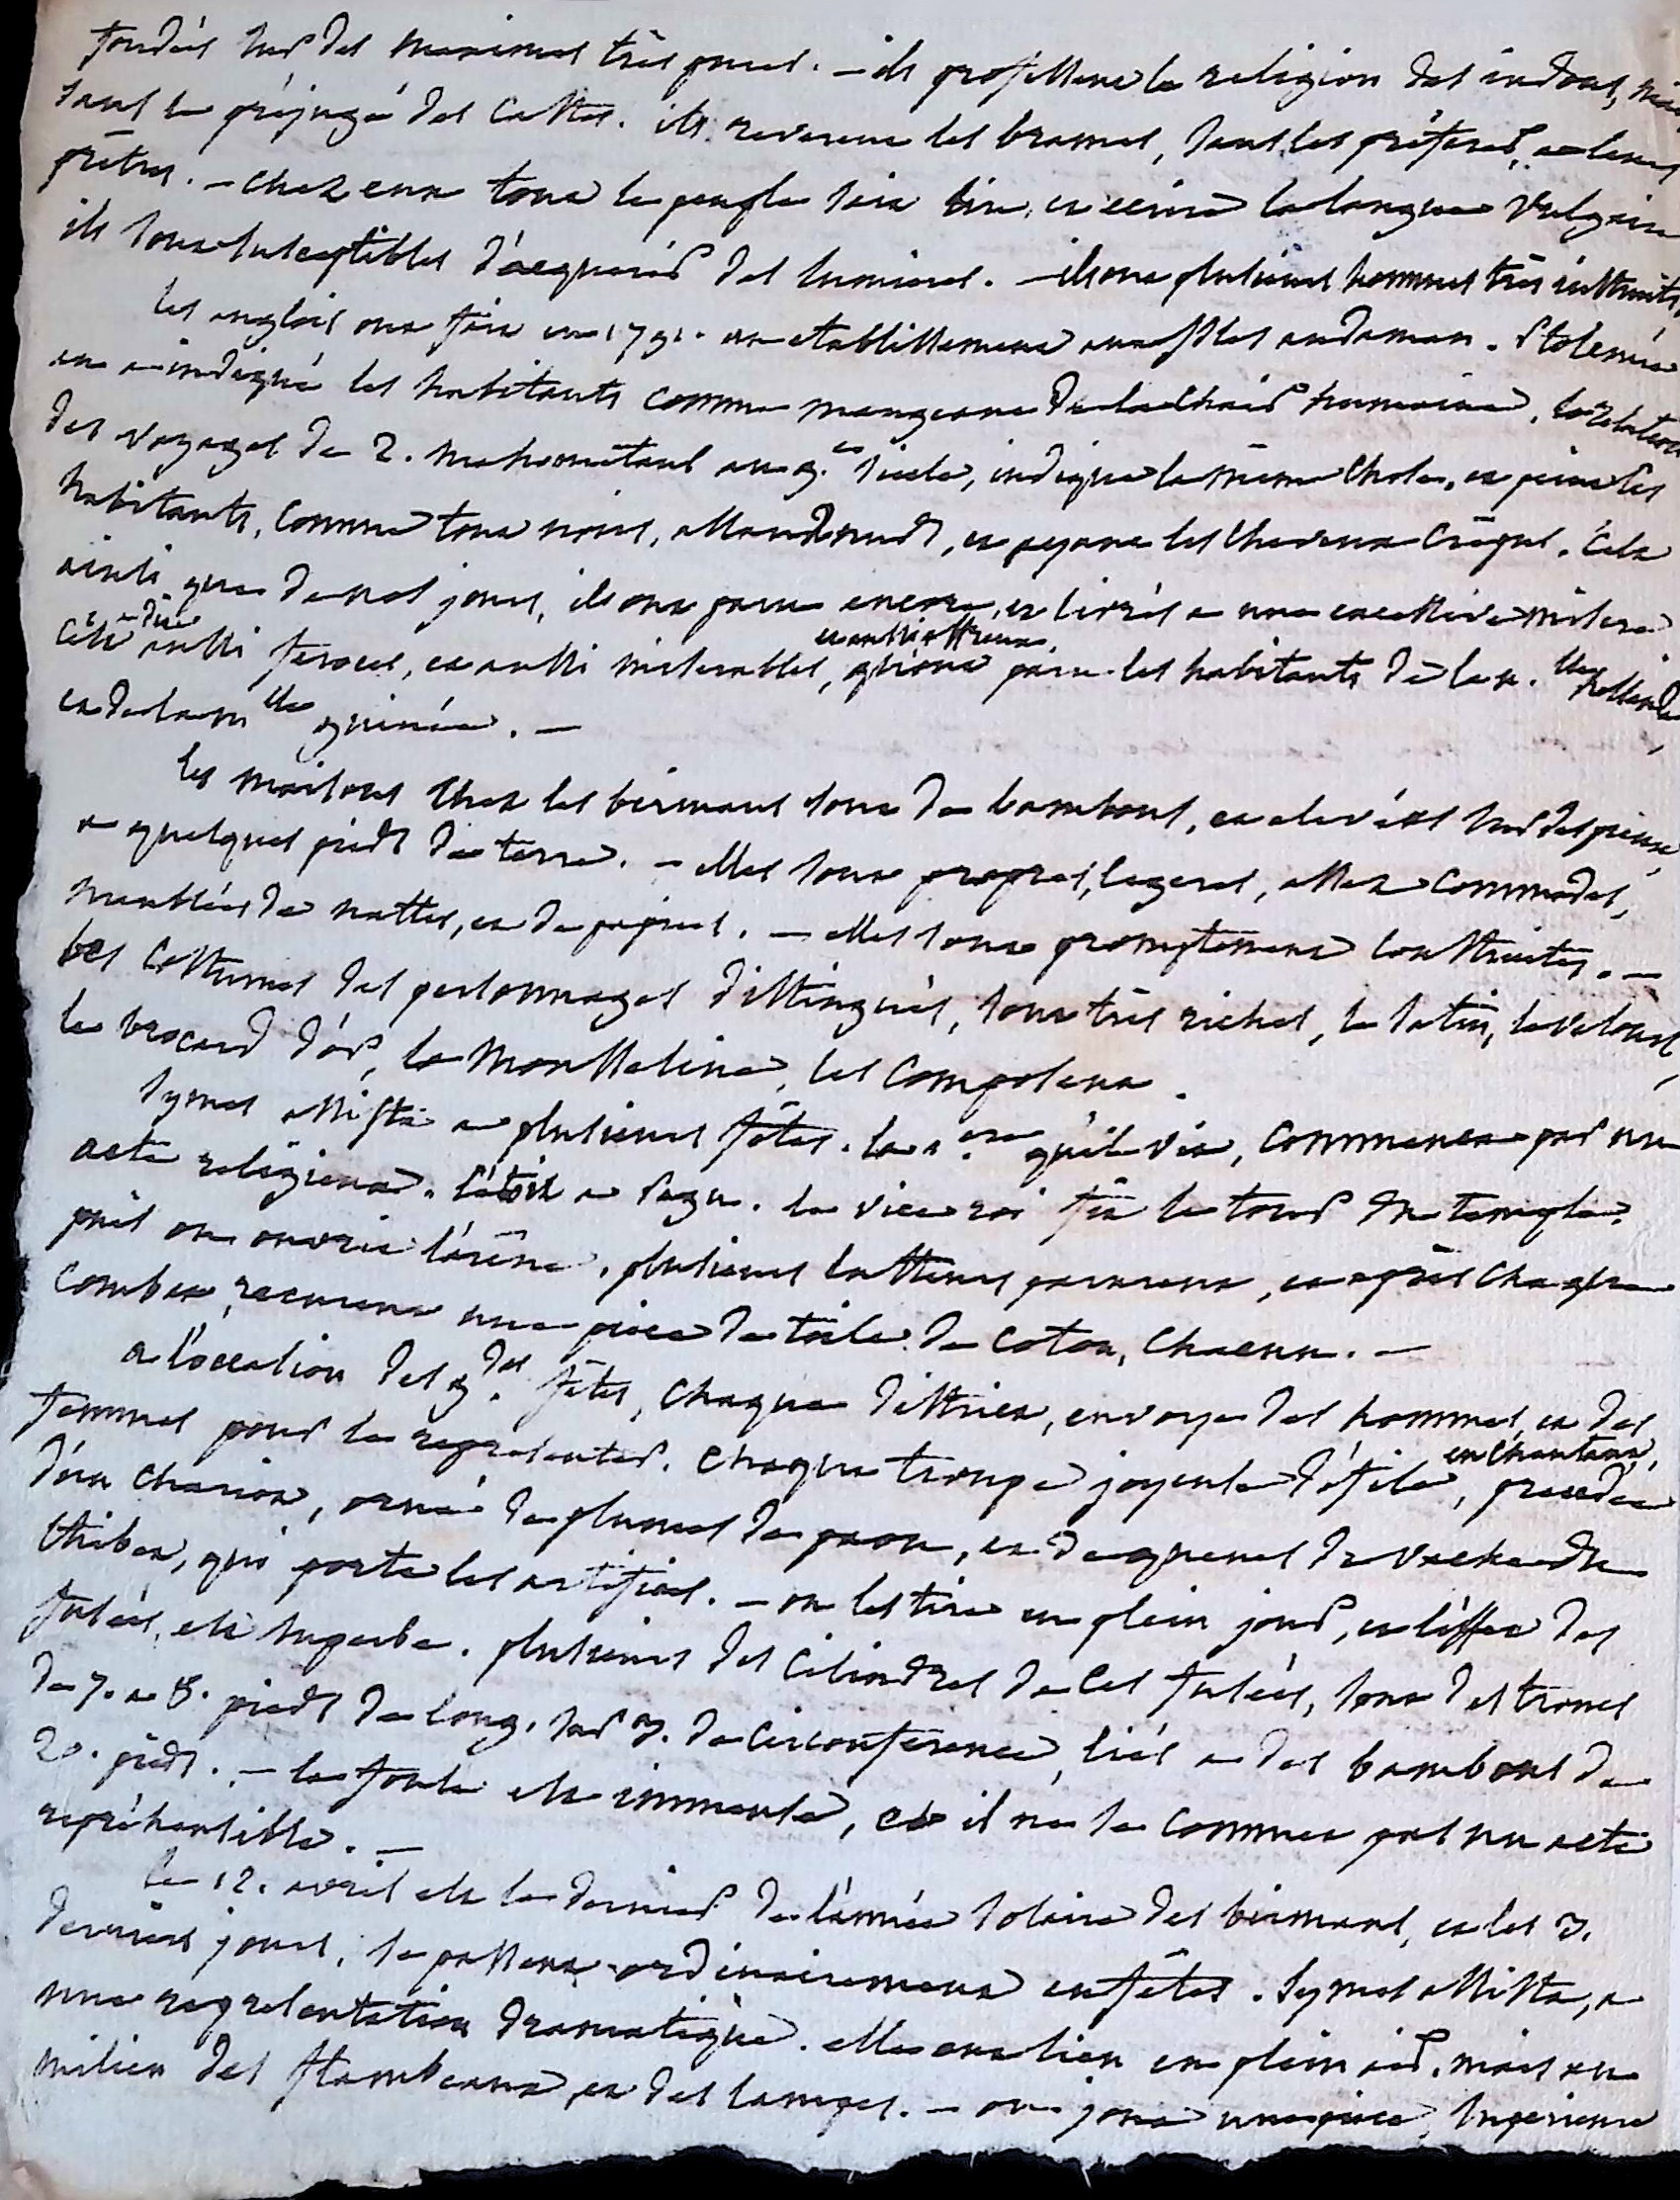 fondées sur des maximes très pures. – ils professent la religion des indous, mais
sans le préjugé des castes. ils reverent les brames, sans les préferer, a leurs
prêtres. – chez eux tout le peuple sait lire, et ecrire la langue vulgaire
ils sont susceptibles d'acquerir des lumieres. – ils ont plusieurs hommes très instruits.
les anglois ont fait en 1791. un etablissement aux isles andaman. Ptolemée
en a indiqué les habitants comme mangeant de la chair humaine. la relation
des voyages de 2. mahometans au 9.e siecle, indique la même chose, et peint les
habitants, comme tout noirs, allant nuds, et ayant les cheveux crêpus. c'est
ainsi que de nos jours, ils ont paru encore, et livrés a une excessive misere
c'est a dire aussi feroces, et aussi miserables, et aussi affreux, qu'ont paru les habitants de la n.lle hollande,
et de la n.lle guinée. –
les maisons chez les birmans sont de bambous, et elevées sur des pieux,
a quelques pieds de terre. – elles sont propres, legeres, assez commodes,
meublées de nattes, et de . – elles sont promptement construites. –
les costumes des personnages distingués, sont très riches, le satin, le velours,
le brocard d'or, la mousseline, les composent.
Symes assista a plusieurs fêtes. la 1.ere qu'il vit, commença par un
acte religieux. c'étoit a Pegu. le vice roi fit le tour du temple.
puis on ouvrit l'arêne. plusieurs lutteurs parurent, et après chaque
combat, reçurent une piece de toile de coton, chacun. –
a l'occasion des g.des fêtes, chaque district, envoye des hommes, et des
femmes pour le representer. chaque troupe joyeuse défile, en chantant, precedée
d'un chariot, orné de plumes de paon, et de queues de vache du
thibet, qui porte les artifices. – on les tire en plein jour, et l'effet des
fusées, est superbe. plusieurs des cilindres de ces fusées, sont des troncs
de 7. a 8. pieds de long. sur 3. de circonférence, liés a des bambous de
20. pieds. – la foule est immense, et il ne se commet pas un acte
repréhensible. –
le 12. avril est le dernier de l'année solaire des birmans, et les 3.
derniers jours, se passent ordinairement en fêtes. Symes assista, a
une representation dramatique. elle eut lieu en plein air, mais au
milieu des flambeaux, et des lampes. – on joua une piece, superieure